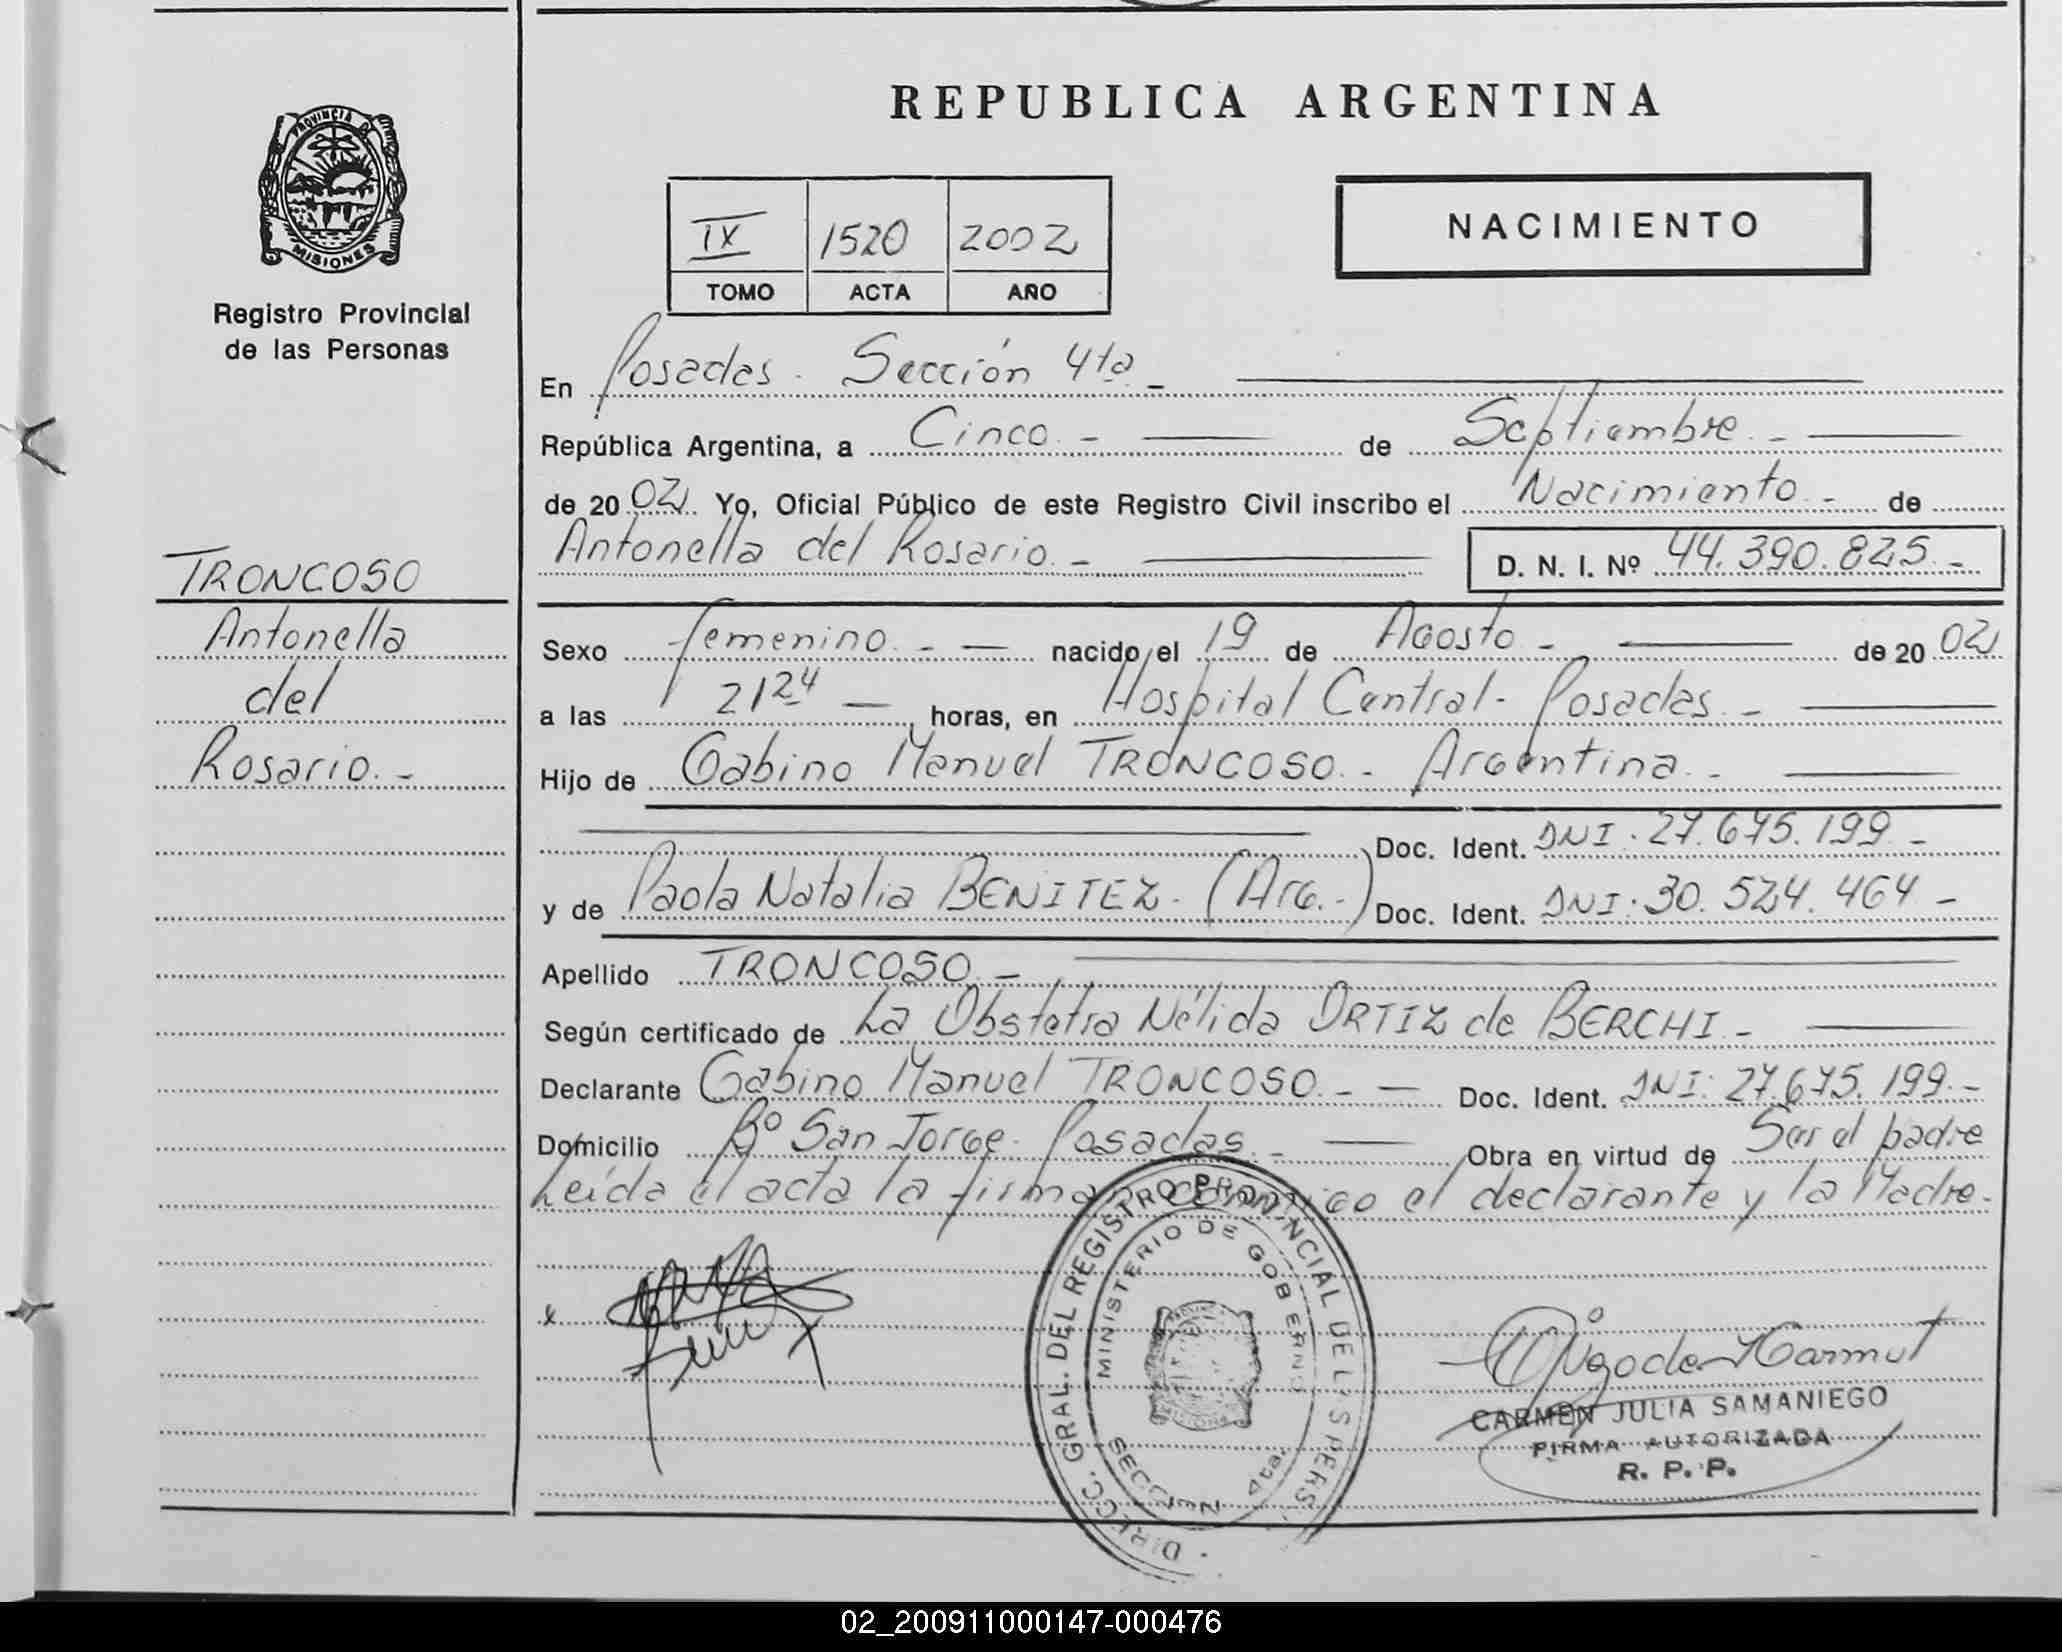 PROVINCIA DE
MISIONES
Registro Provincial
de las Personas
TRONCOSO
Antonella
del
Rosario.-
REPUBLICA ARGENTINA
IX 1520 2002
TOMO ACTA AÑO
NACIMIENTO
En Posadas. Sección 4ta.-
República Argentina, a Cinco.- de Septiembre.-
de 2002. Yo, Oficial Público de este Registro Civil inscribo el Nacimiento.- de
Antonella del Rosario.- D. N. I. Nº 44.390.825.-
Sexo femenino.- nacido el 19 de Agosto.- de 2002
a las 21 24 horas, en Hospital Central- Posadas.-
Hijo de Gabino Manuel TRONCOSO.- Argentina.-
Doc. Ident. DNI: 27.675.199.-
y de Paola Natalia BENITEZ. (Arg.-) Doc. Ident. DNI: 30.524.464.-
Apellido TRONCOSO.-
Según certificado de La Obstetra Nélida ORTIZ de BERCHI.-
Declarante Gabino Manuel TRONCOSO.- Doc. Ident. DNI: 27.675.199.-
Domicilio Bº San Jorge- Posadas.- Obra en virtud de Ser el padre
Leída el acta la firman conmigo el declarante y la Madre.
DIRECC. GRAL. DEL REGISTRO PROVINCIAL DE LAS PERS.
MINISTERIO DE GOBIERNO
SECCION 4ta.
CARMEN JULIA SAMANIEGO
FIRMA AUTORIZADA
R. P. P.
02_200911000147-000476